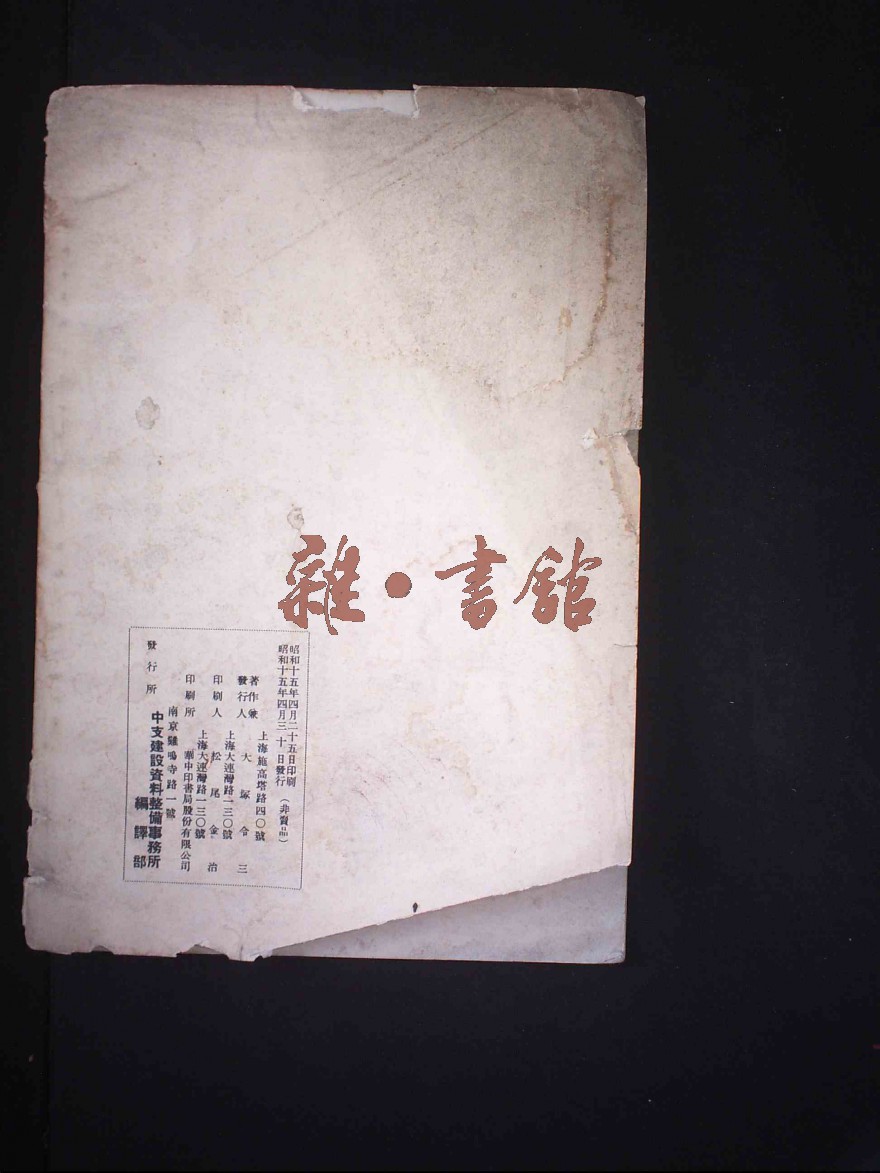 雜·書館
昭和十五年四月二十五日印刷
昭和十五年四月三十日發行 (非賣品)
上海施高塔路四〇號
著作兼
發行人 大塚令三
上海大連灣路一三〇號
印刷人 松尾金治
上海大連灣路一三〇號
印刷所 華中印書局股份有限公司
南京雞鳴寺路一號
發行所 中支建設資料整備事務所
編譯部